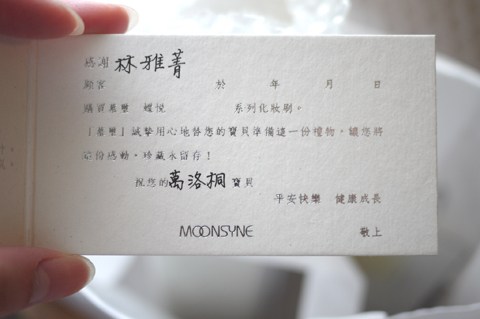 感謝 林雅菁
於 年 月 日
購買慕璽 耀悅 系列化妝刷。
「慕璽」誠摯用心地替您的寶貝準備這一份禮物，讓您將
這份感動，珍藏永留存！
祝您的 萬洛桐 寶貝
平安快樂 健康成長
MOONSYNE 敬上